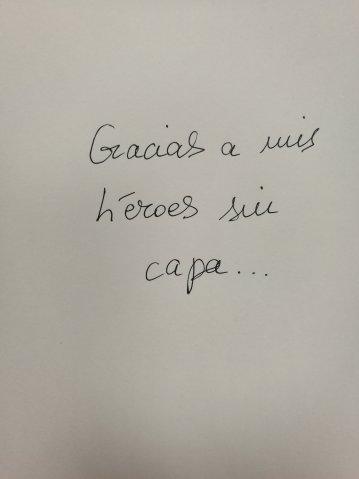 Gracias a mis
héroes sin
capa...